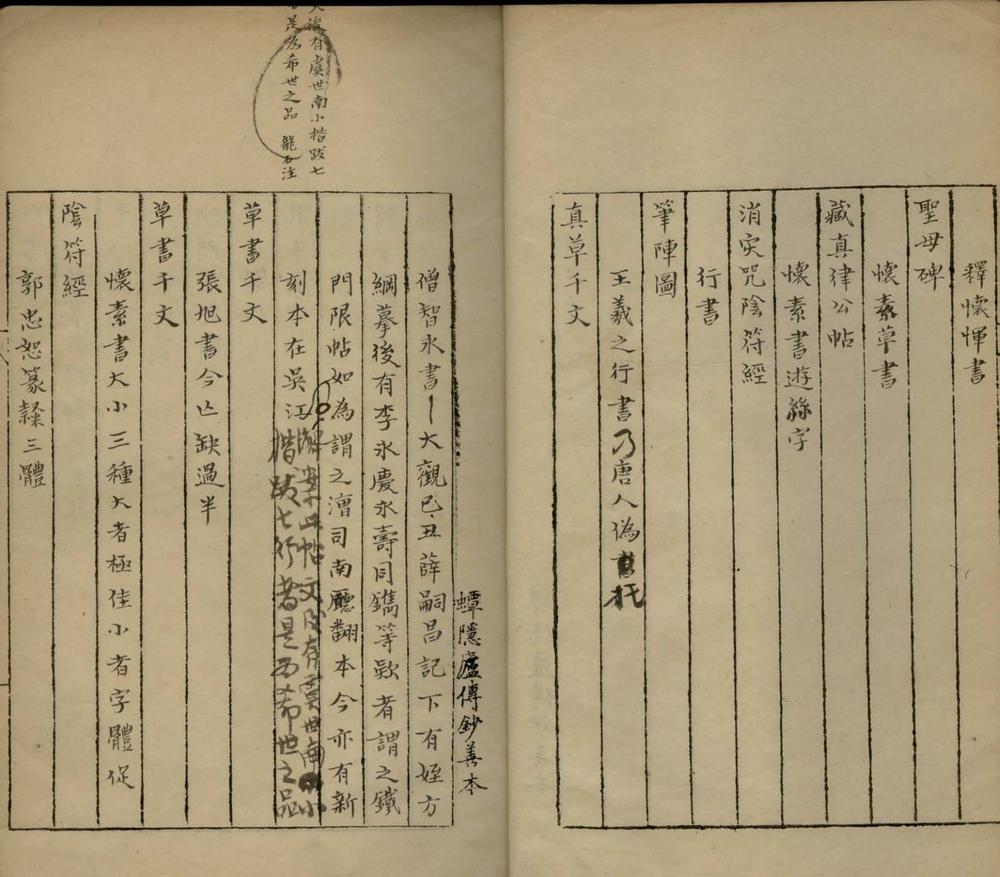 釋懷惲書
聖母碑
懷素草書
藏真律公帖
懷素書遊絲字
消灾咒陰符經
行書
筆陣圖
王羲之行書乃唐人偽托
真草千文
蟫隱廬傳鈔善本
僧智永書大觀已丑薛嗣昌記下有姪方
綱摹後有李永慶永壽同鐫等欵者謂之鐵
門限帖如為謂之漕司南廳翻本今亦有新
刻本在吳江
此帖文後有虞世南小
楷跋七行者是為希世之品
後有虞世南小楷跋七
是為希世之品 龍石注
草書千文
張旭書今亡缺過半
草書千文
懷素書大小三種大者極佳小者字體促
陰符經
郭忠恕篆隸三體